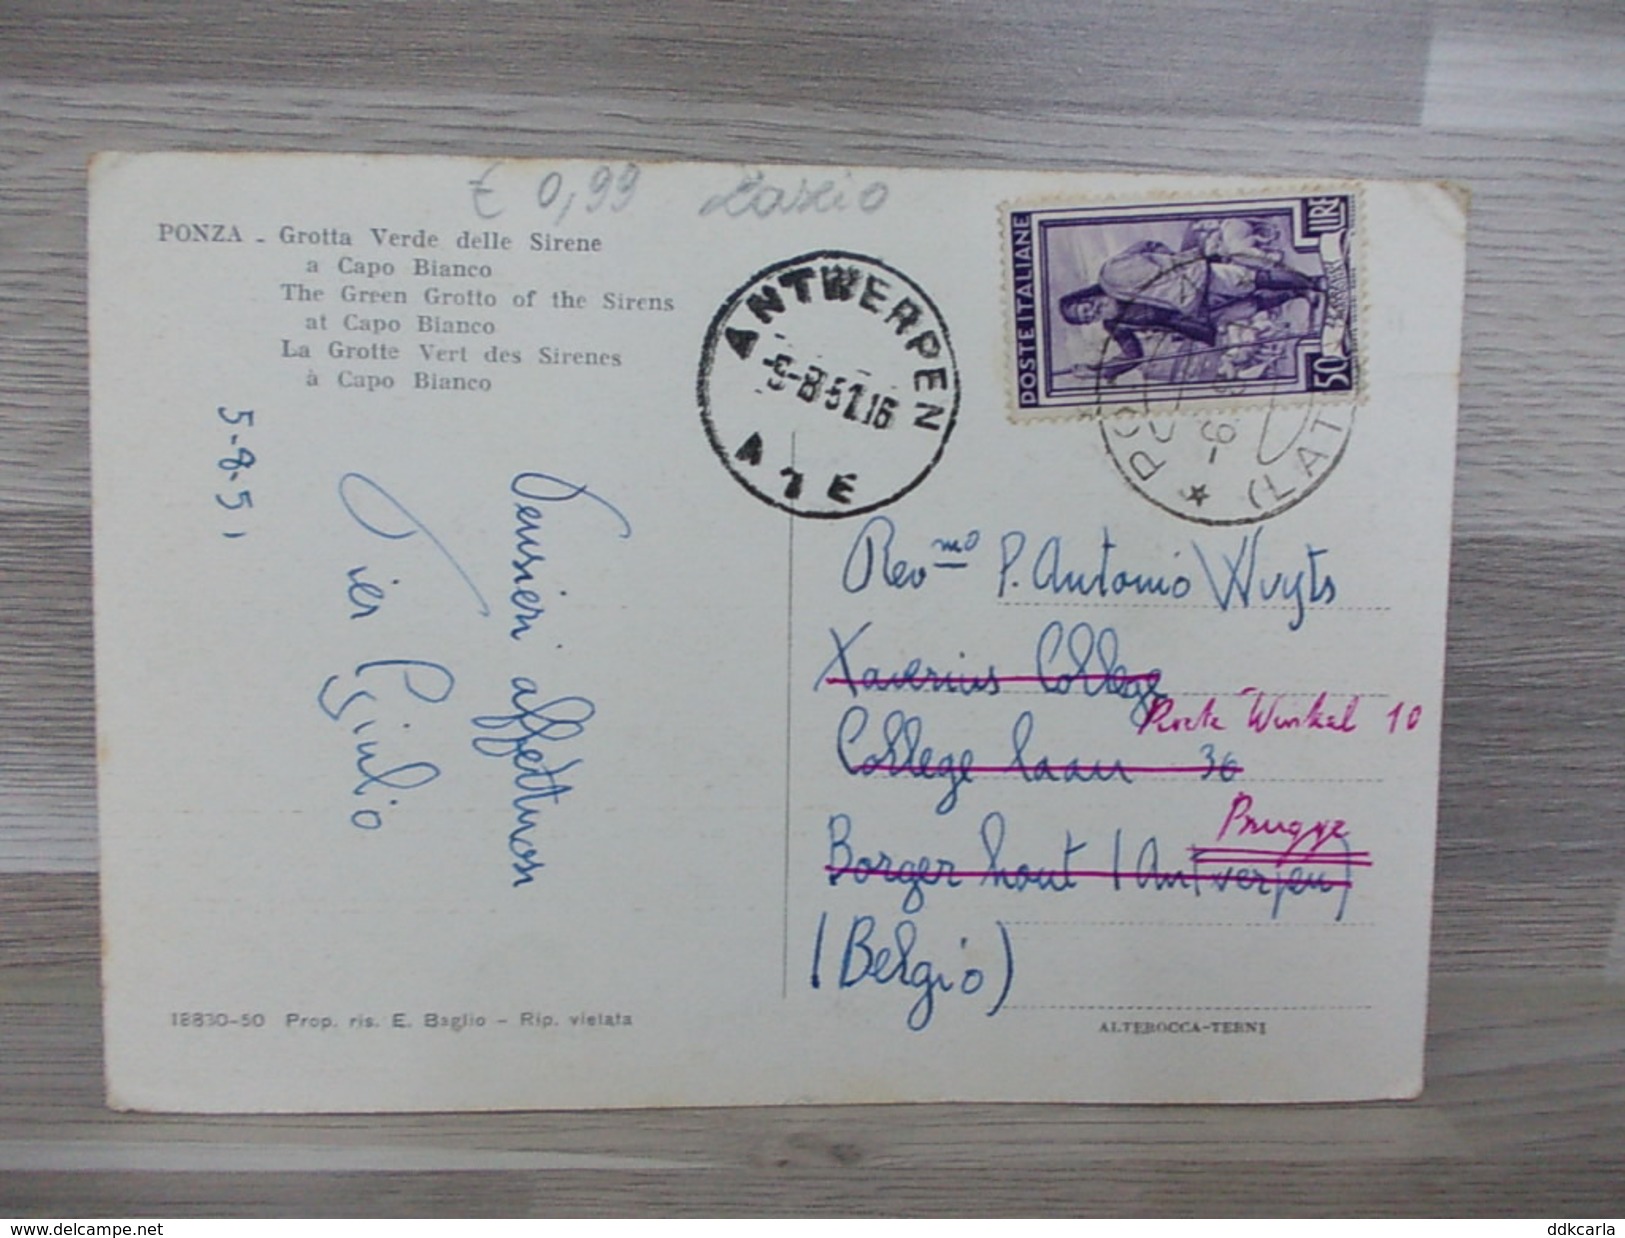 € 0,99 Lazio
PONZA - Grotta Verde delle Sirene
a Capo Bianco
The Green Grotto of the Sirens
at Capo Bianco
La Grotte Vert des Sirenes
à Capo Bianco
5-8-51
Pensieri affettuosi
Pier Giulio
18830-50 Prop. ris. E. Baglio - Rip. vietata
ANTWERPEN
-9-8 51.16
A 1 E
POSTE ITALIANE
50 LIRE
(LAT
Rev.mo P. Antonio Wuyts
Xaverius College
Winkel 10
College laan 36
Brugge
Borgerhout (Antwerpen)
(Belgio)
ALTEROCCA-TERNI
delcampe.net
ddkcarla